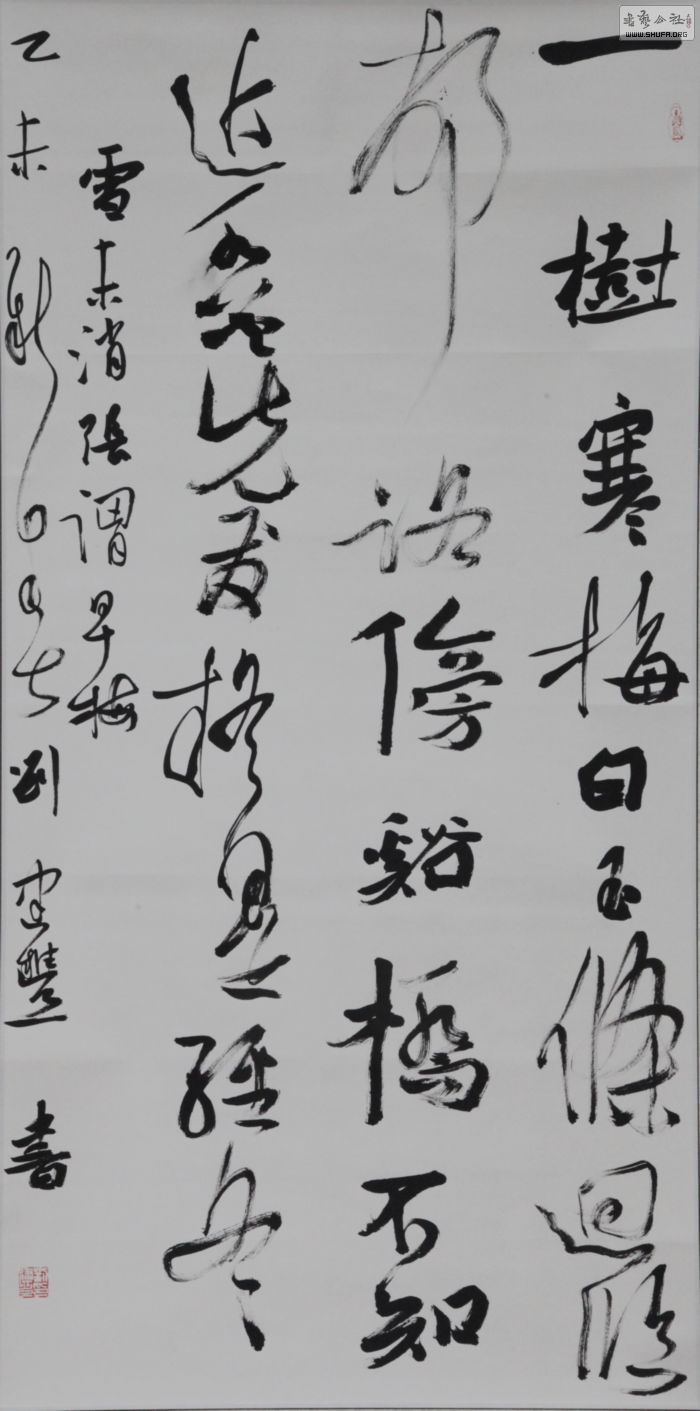 書藝公社
WWW.SHUFA.ORG
一樹寒梅白玉條迴臨
邨路傍谿橋不知
近水花先發疑是經冬
雪未消張謂早梅
乙未 劉 豐書